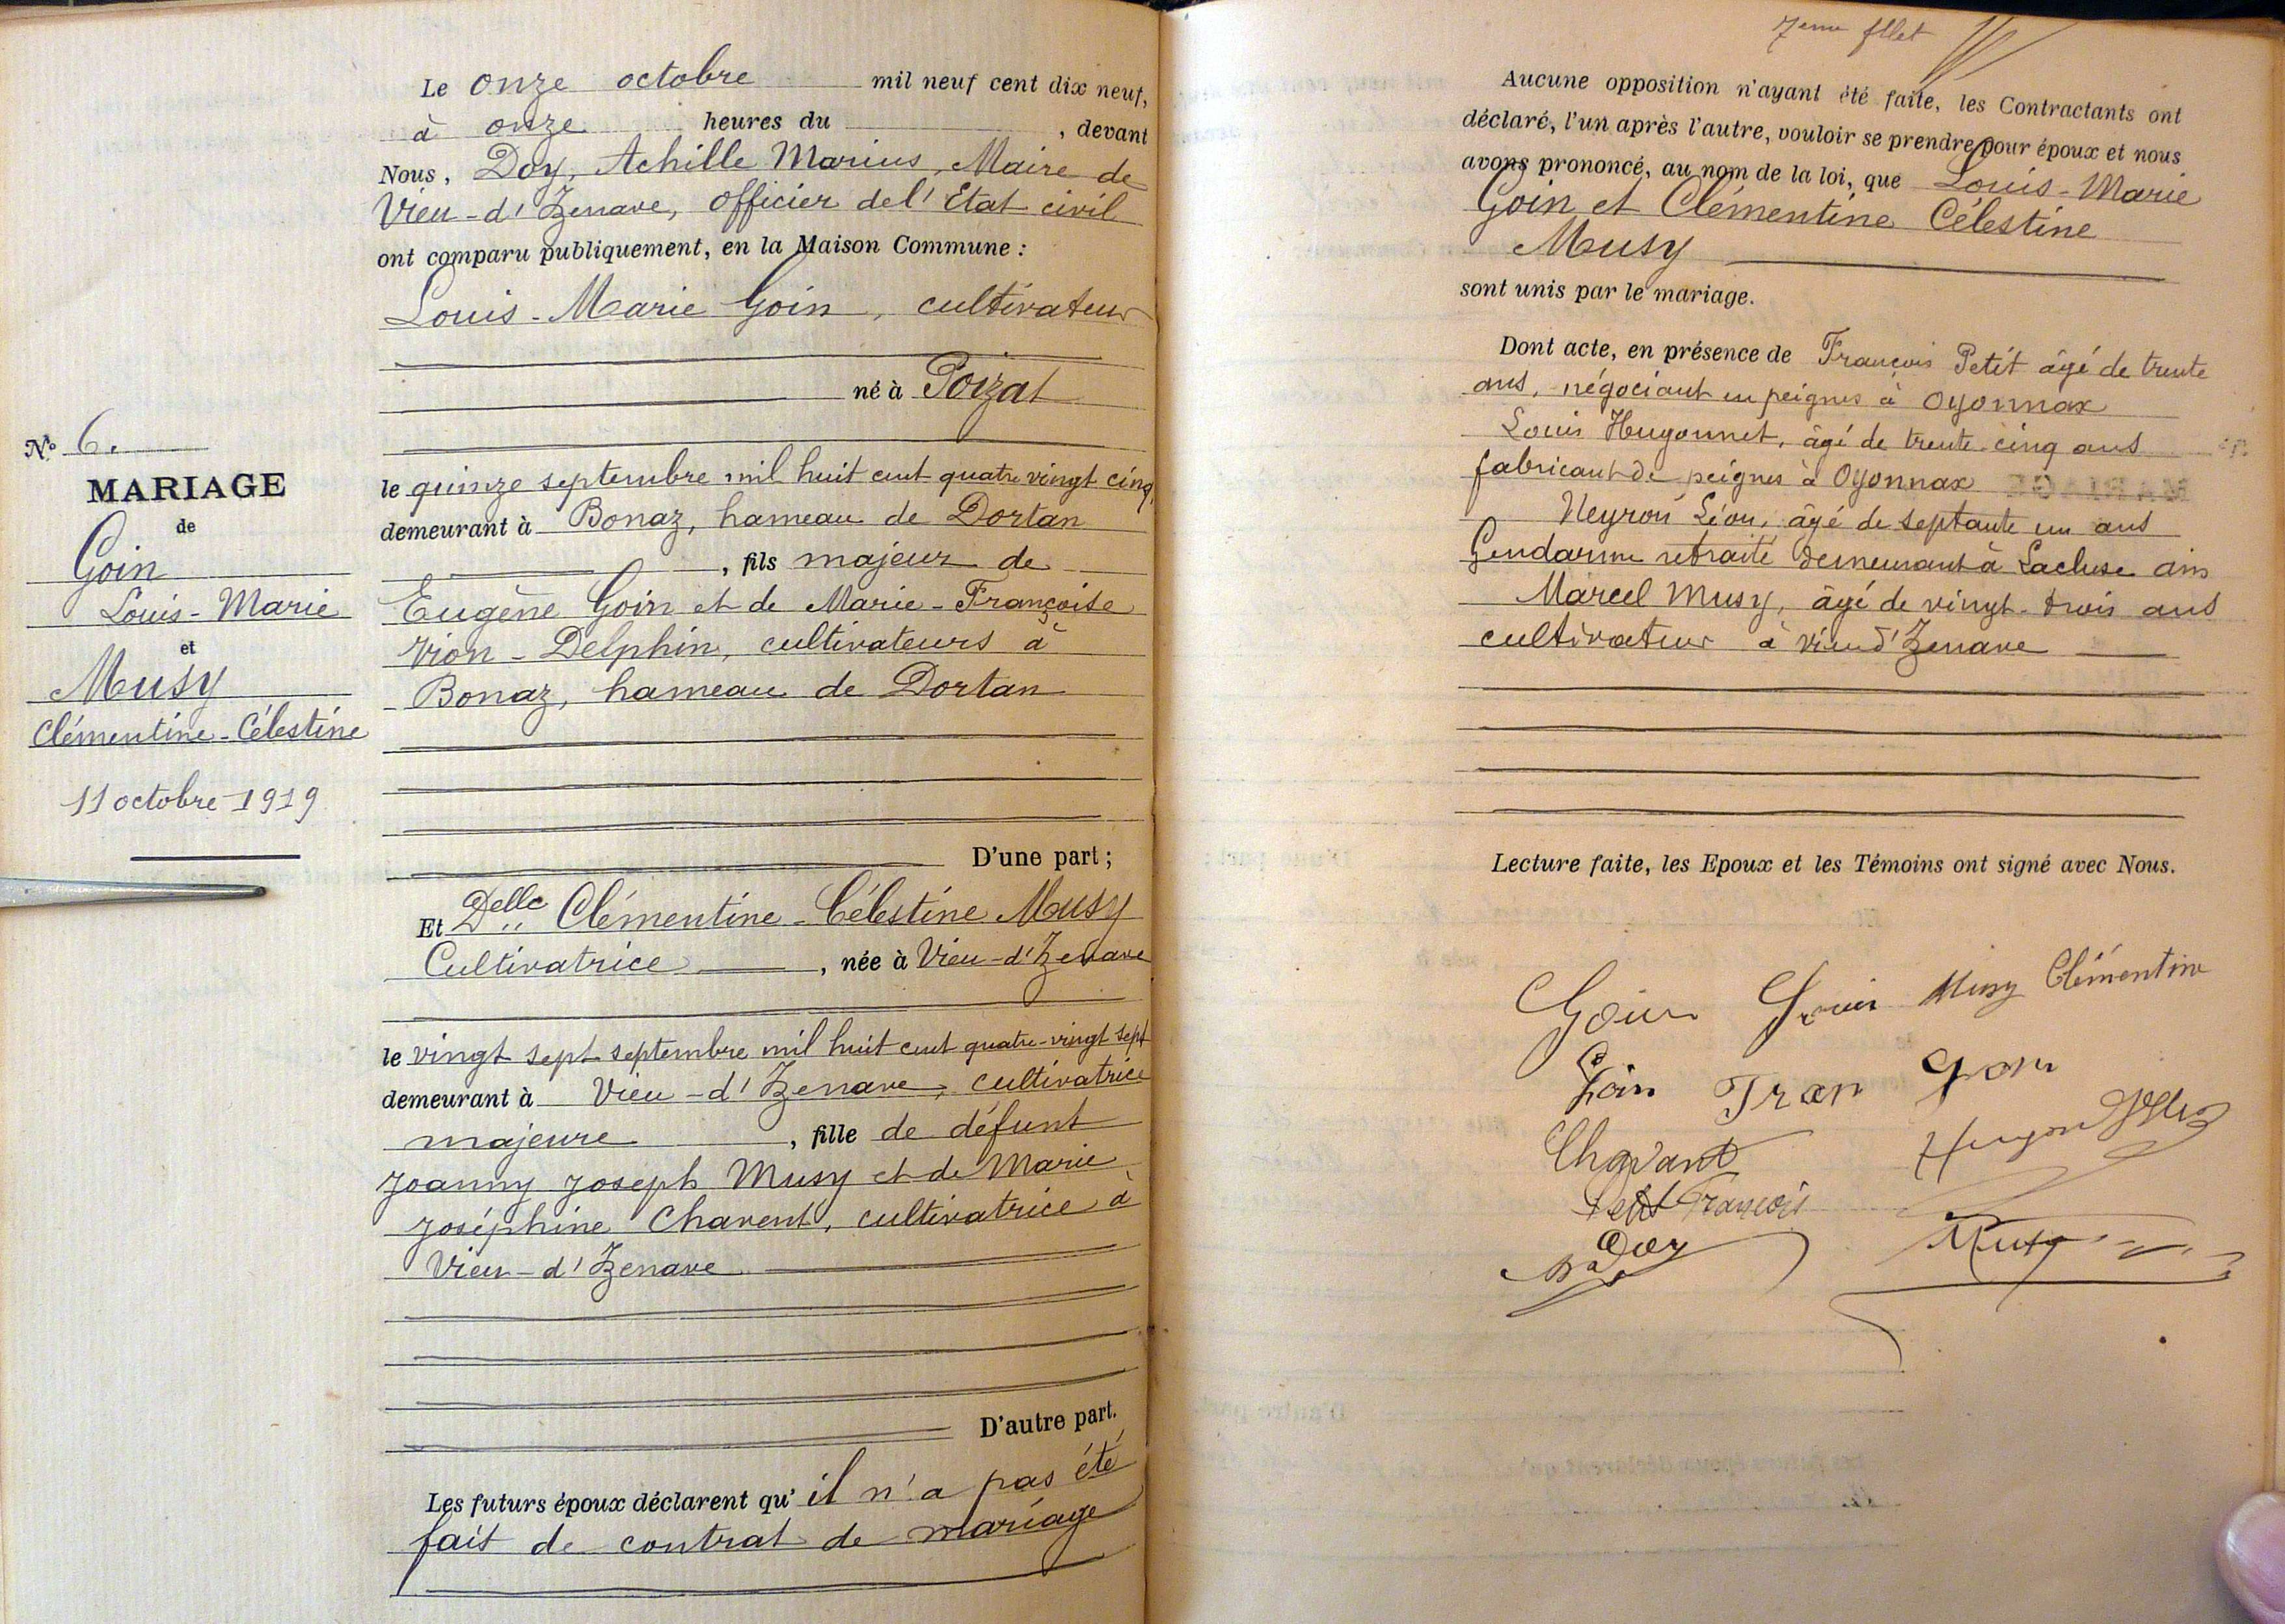 N° 6.
MARIAGE
de
Goin
Louis-Marie
et
Musy
Clémentine-Célestine
11 octobre 1919
Le onze octobre mil neuf cent dix neuf,
à onze heures du , devant
Nous, Doy, Achille Marius, Maire de
Vieu-d'Izenave, officier de l'Etat civil
ont comparu publiquement, en la Maison Commune :
Louis-Marie Goin, cultivateur
né à Poizat
le quinze septembre mil huit cent quatre vingt cinq,
demeurant à Bonaz, hameau de Dortan
, fils majeur de
Eugène Goin et de Marie-Françoise
Vion-Delphin, cultivateurs à
Bonaz, hameau de Dortan
D'une part ;
Et Delle Clémentine-Célestine Musy
Cultivatrice , née à Vieu-d'Izenave
le vingt sept septembre mil huit cent quatre-vingt sept
demeurant à Vieu-d'Izenave, cultivatrice
majeure , fille de défunt
Joanny Joseph Musy et de Marie
Joséphine Chavent, cultivatrice à
Vieu-d'Izenave
D'autre part.
Les futurs époux déclarent qu'il n'a pas été
fait de contrat de mariage
7eme fllet
Aucune opposition n'ayant été faite, les Contractants ont
déclaré, l'un après l'autre, vouloir se prendre pour époux et nous
avons prononcé, au nom de la loi, que Louis-Marie
Goin et Clémentine Célestine
Musy
sont unis par le mariage.
Dont acte, en présence de François Petit âgé de trente
ans, négociant en peignes à Oyonnax
Louis Hugonnet, âgé de trente-cinq ans
fabricant de peignes à Oyonnax
Neyron Léon, âgé de septante un ans
Gendarme retraité demeurant à Lacluse ain
Marcel Musy, âgé de vingt-trois ans
cultivateur à Vieu d'Izenave
Lecture faite, les Epoux et les Témoins ont signé avec Nous.
Goin Louis Musy Clémentine
Goin Fran Goin
Chavant
Petit François
Doy
Musy